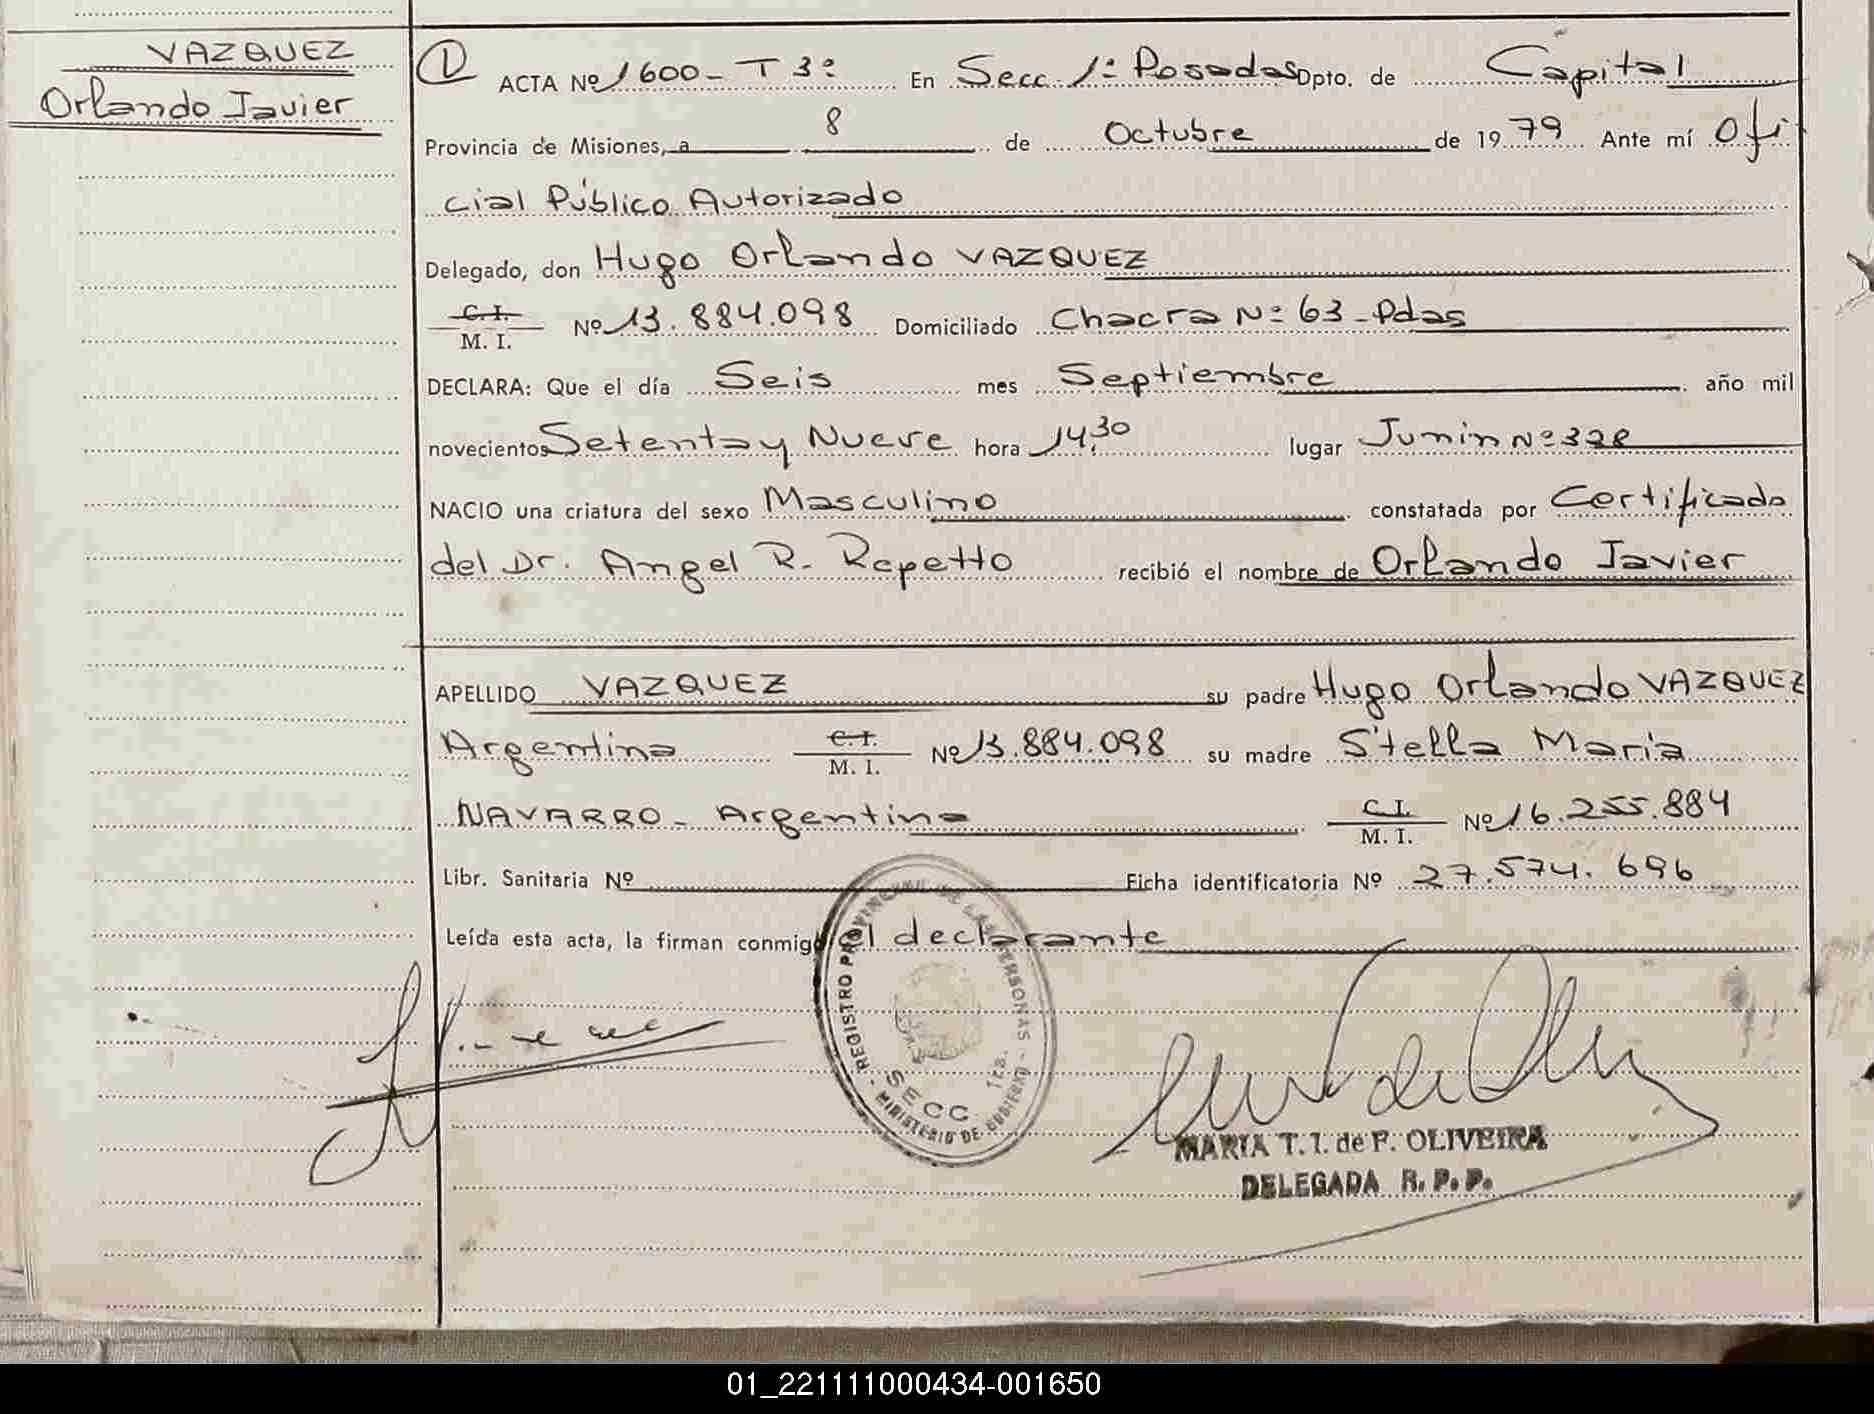 VAZQUEZ
Orlando Javier
1 ACTA Nº 1600 - T 3º En Secc. 1ª Posadas Dpto. de Capital
Provincia de Misiones, a 8 de Octubre de 1979 Ante mí Ofi
cial Público Autorizado
Delegado, don Hugo Orlando VAZQUEZ
C. I.
M. I. Nº 13.884.098 Domiciliado Chacra Nº 63 - Pdas
DECLARA: Que el día Seis mes Septiembre año mil
novecientos Setenta y Nueve hora 14,30 lugar Junin Nº 328
NACIO una criatura del sexo Masculino constatada por Certificado
del Dr. Angel R. Repetto recibió el nombre de Orlando Javier
APELLIDO VAZQUEZ su padre Hugo Orlando VAZQUEZ
Argentina C. I.
M. I. Nº 13.884.098 su madre Stella Maria
NAVARRO - Argentina C. I.
M. I. Nº 16.255.884
Libr. Sanitaria Nº Ficha identificatoria Nº 27.574.696
Leída esta acta, la firman conmigo el declarante
REGISTRO PROVINCIAL DE LAS PERSONAS
SECC. 1ra.
MINISTERIO DE GOBIERNO
MARIA T. I. de F. OLIVEIRA
DELEGADA R. P. P.
01_221111000434-001650